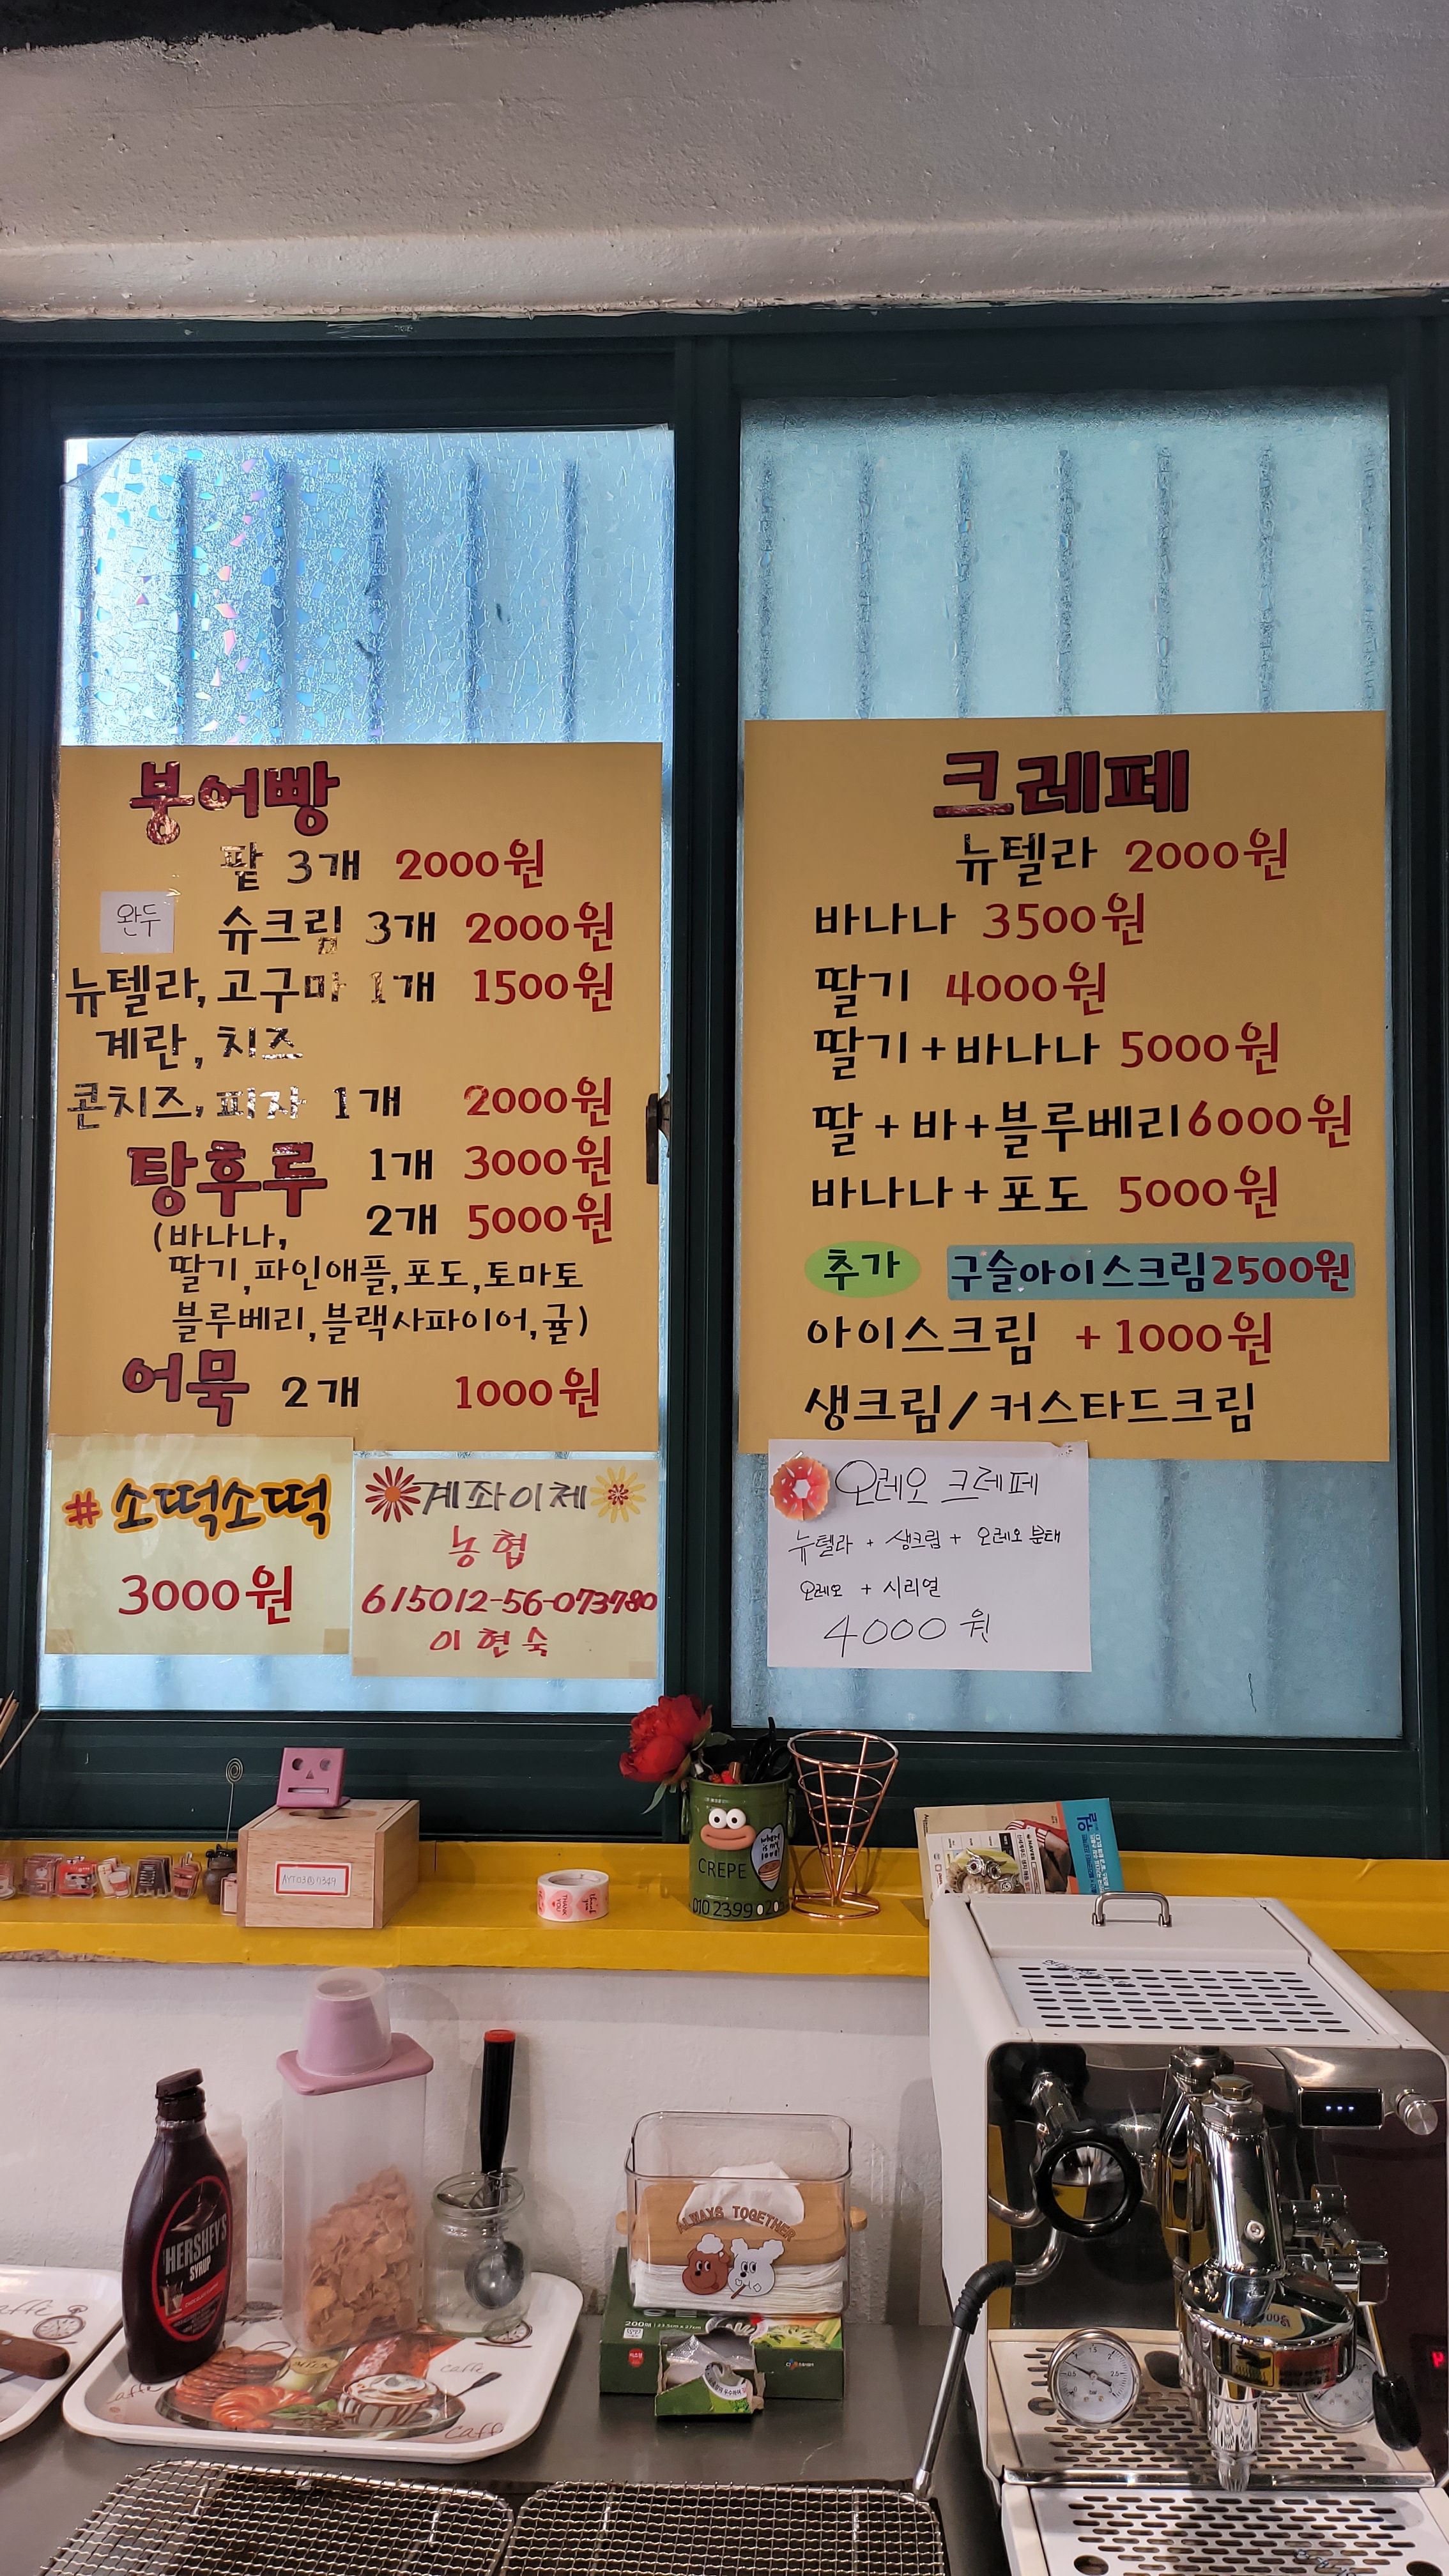 붕어빵
팥 3개 2000원
완두 슈크림 3개 2000원
뉴텔라, 고구마 1개 1500원
계란, 치즈
콘치즈, 피자 1개 2000원
탕후루 1개 3000원
2개 5000원
(바나나,
딸기,파인애플,포도,토마토
블루베리,블랙사파이어,귤)
어묵 2개 1000원
#소떡소떡
3000원
계좌이체
농협
615012-56-073780
이현숙
크레페
뉴텔라 2000원
바나나 3500원
딸기 4000원
딸기+바나나 5000원
딸+바+블루베리 6000원
바나나+포도 5000원
추가 구슬아이스크림2500원
아이스크림 +1000원
생크림/커스타드크림
오레오 크레페
뉴텔라 + 생크림 + 오레오 분태
오레오 + 시리얼
4000원
CREPE
010 2399
THANK YOU
HERSHEY'S
SYRUP
ALWAYS TOGETHER
caffè
caffe